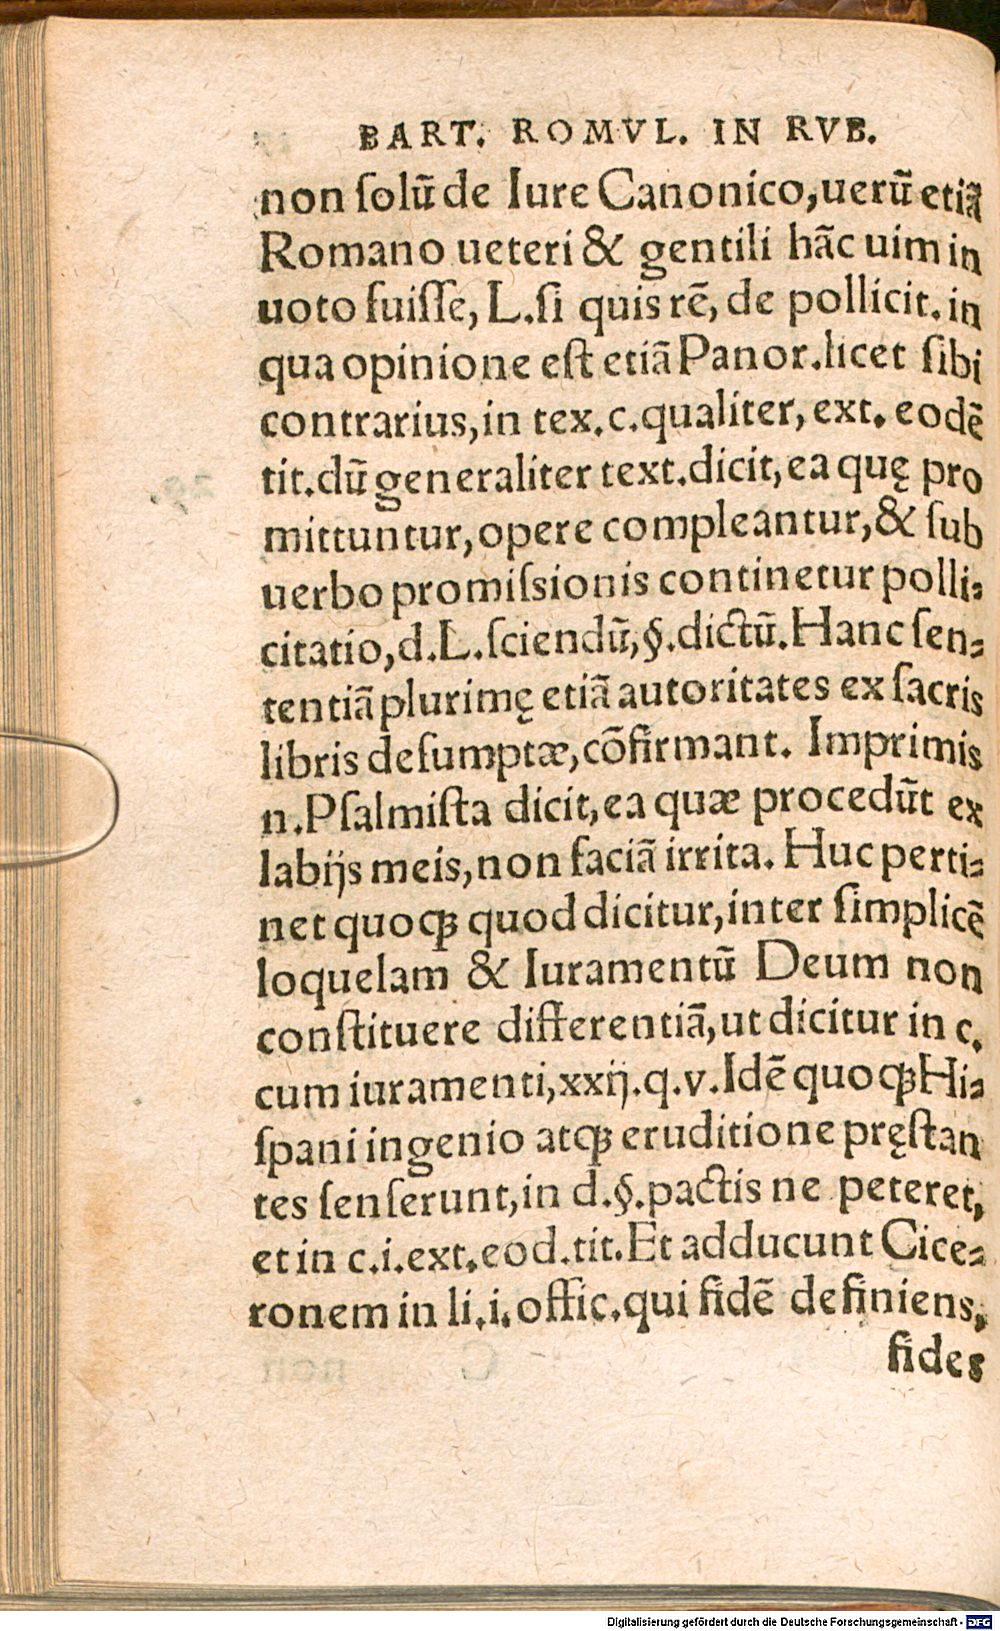 BART. ROMVL. IN RVB.
non ſolū de Iure Canonico, uerū etiā
Romano ueteri & gentili hāc uim in
uoto fuiſſe, L. ſi quis rē, de pollicit. in
qua opinione eſt etiā Panor. licet ſibi
contrarius, in tex. c. qualiter, ext. eodē
tit. dū generaliter text. dicit, ea quę pro
mittuntur, opere compleantur, & ſub
uerbo promiſsionis continetur polli⸗
citatio, d. L. ſciendū, §. dictū. Hanc ſen⸗
tentiā plurimę etiā autoritates ex ſacris
libris deſumptæ, cōfirmant. Imprimis
n. Pſalmiſta dicit, ea quæ procedūt ex
labijs meis, non faciā irrita. Huc perti⸗
net quoqꝫ quod dicitur, inter ſimplicē
loquelam & Iuramentū Deum non
conſtituere differentiā, ut dicitur in c.
cum iuramenti, xxij. q. v. Idē quoqꝫ Hi⸗
ſpani ingenio atqꝫ eruditione pręſtan
tes ſenſerunt, in d. §. pactis ne peteret,
et in c. i. ext. eod. tit. Et adducunt Cice⸗
ronem in li. i. offic. qui fidē definiens,
fides
Digitalisierung gefördert durch die Deutsche Forschungsgemeinschaft - DFG